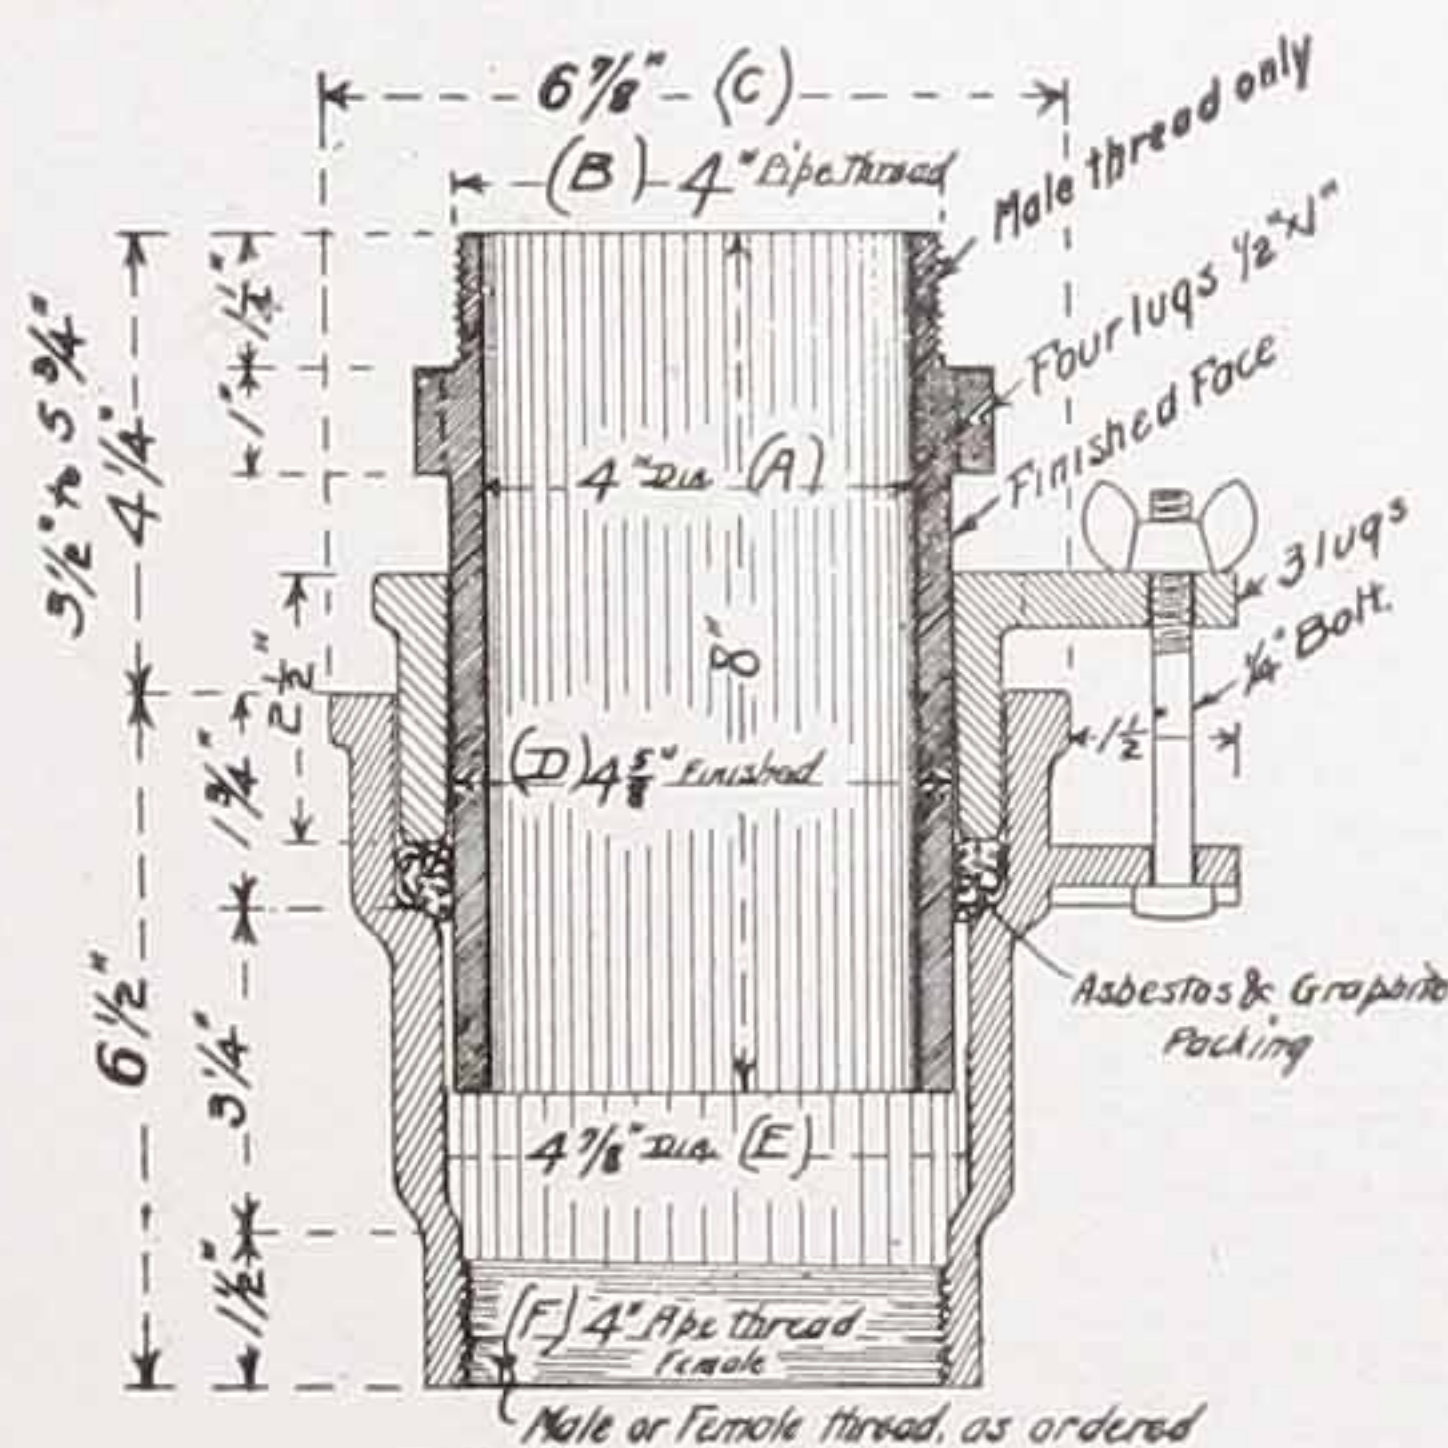 6 7/8" (C)
(B) 4" Pipe thread
Male thread only
Four lugs 1/2" x 1"
Finished Face
1 1/2"
1"
3 1/2" to 5 3/4"
4 1/4"
4" Dia. (A)
3 lugs
1/4" Bolt.
8"
2 1/2"
1 3/4"
(D) 4 5/8" Finished
1 1/2
6 1/2"
3 1/4"
Asbestos & Graphite
Packing
4 7/8" Dia. (E)
1 1/2"
(F) 4" Pipe thread
Female
Male or Female thread, as ordered